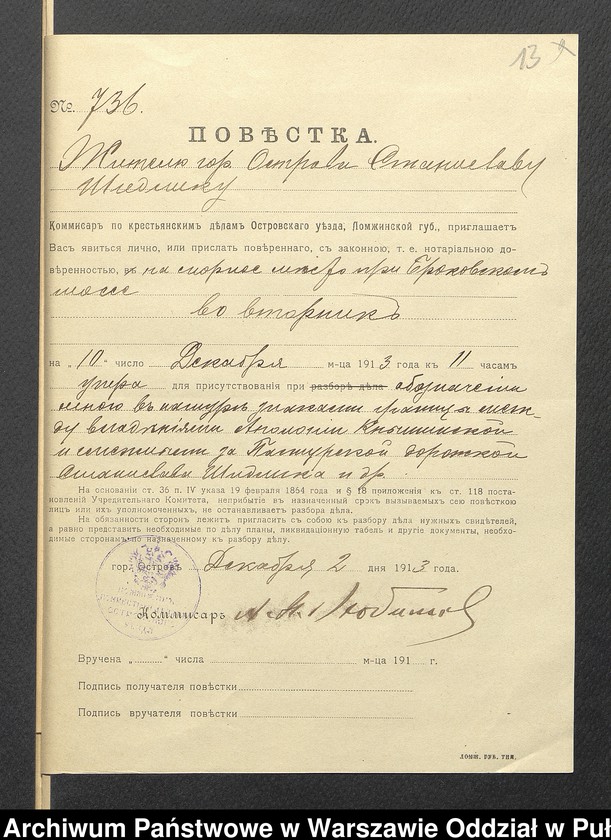 13
№ 736.
ПОВѢСТКА.
Жителю гор. Острова Станиславу
Комисаръ по крестьянскимъ дѣламъ Островскаго уѣзда, Ломжинской губ., приглашаетъ
Васъ явиться лично, или прислать повѣреннаго, съ законною, т. е. нотаріальною до-
вѣренностью, въ на спорное мѣсто при
во вторникъ
на „10" число Декабря м-ца 1913 года къ 11 часамъ
утра для присутствованія при разборѣ дѣла обозначеніи
мною въ натурѣ знаками границы меж-
ду владѣніями Аполоніи
и имѣніемъ за дорожкой
Станислава и др.
На основаніи ст. 36 п. IV указа 19 февраля 1864 года и § 18 приложенія къ ст. 118 поста-
новленій Учредительнаго Комитета, неприбытіе въ назначенный срокъ вызываемыхъ сею повѣсткою
лицъ или ихъ уполномоченныхъ, не останавливаетъ разбора дѣла.
На обязанности сторонъ лежитъ пригласить съ собою къ разбору дѣла нужныхъ свидѣтелей,
а равно представить необходимые по дѣлу планы, ликвидаціонную табель и другіе документы, необхо-
димые сторонамъ по назначенному къ разбору дѣлу.
гор. Островъ Декабря 2 дня 1913 года.
Коммисаръ
Вручена „ " числа м-ца 191 г.
Подпись получателя повѣстки
Подпись вручателя повѣстки
ЛОМЖ. ГУБ. ТИП.
Archiwum Państwowe w Warszawie Oddział w Puł